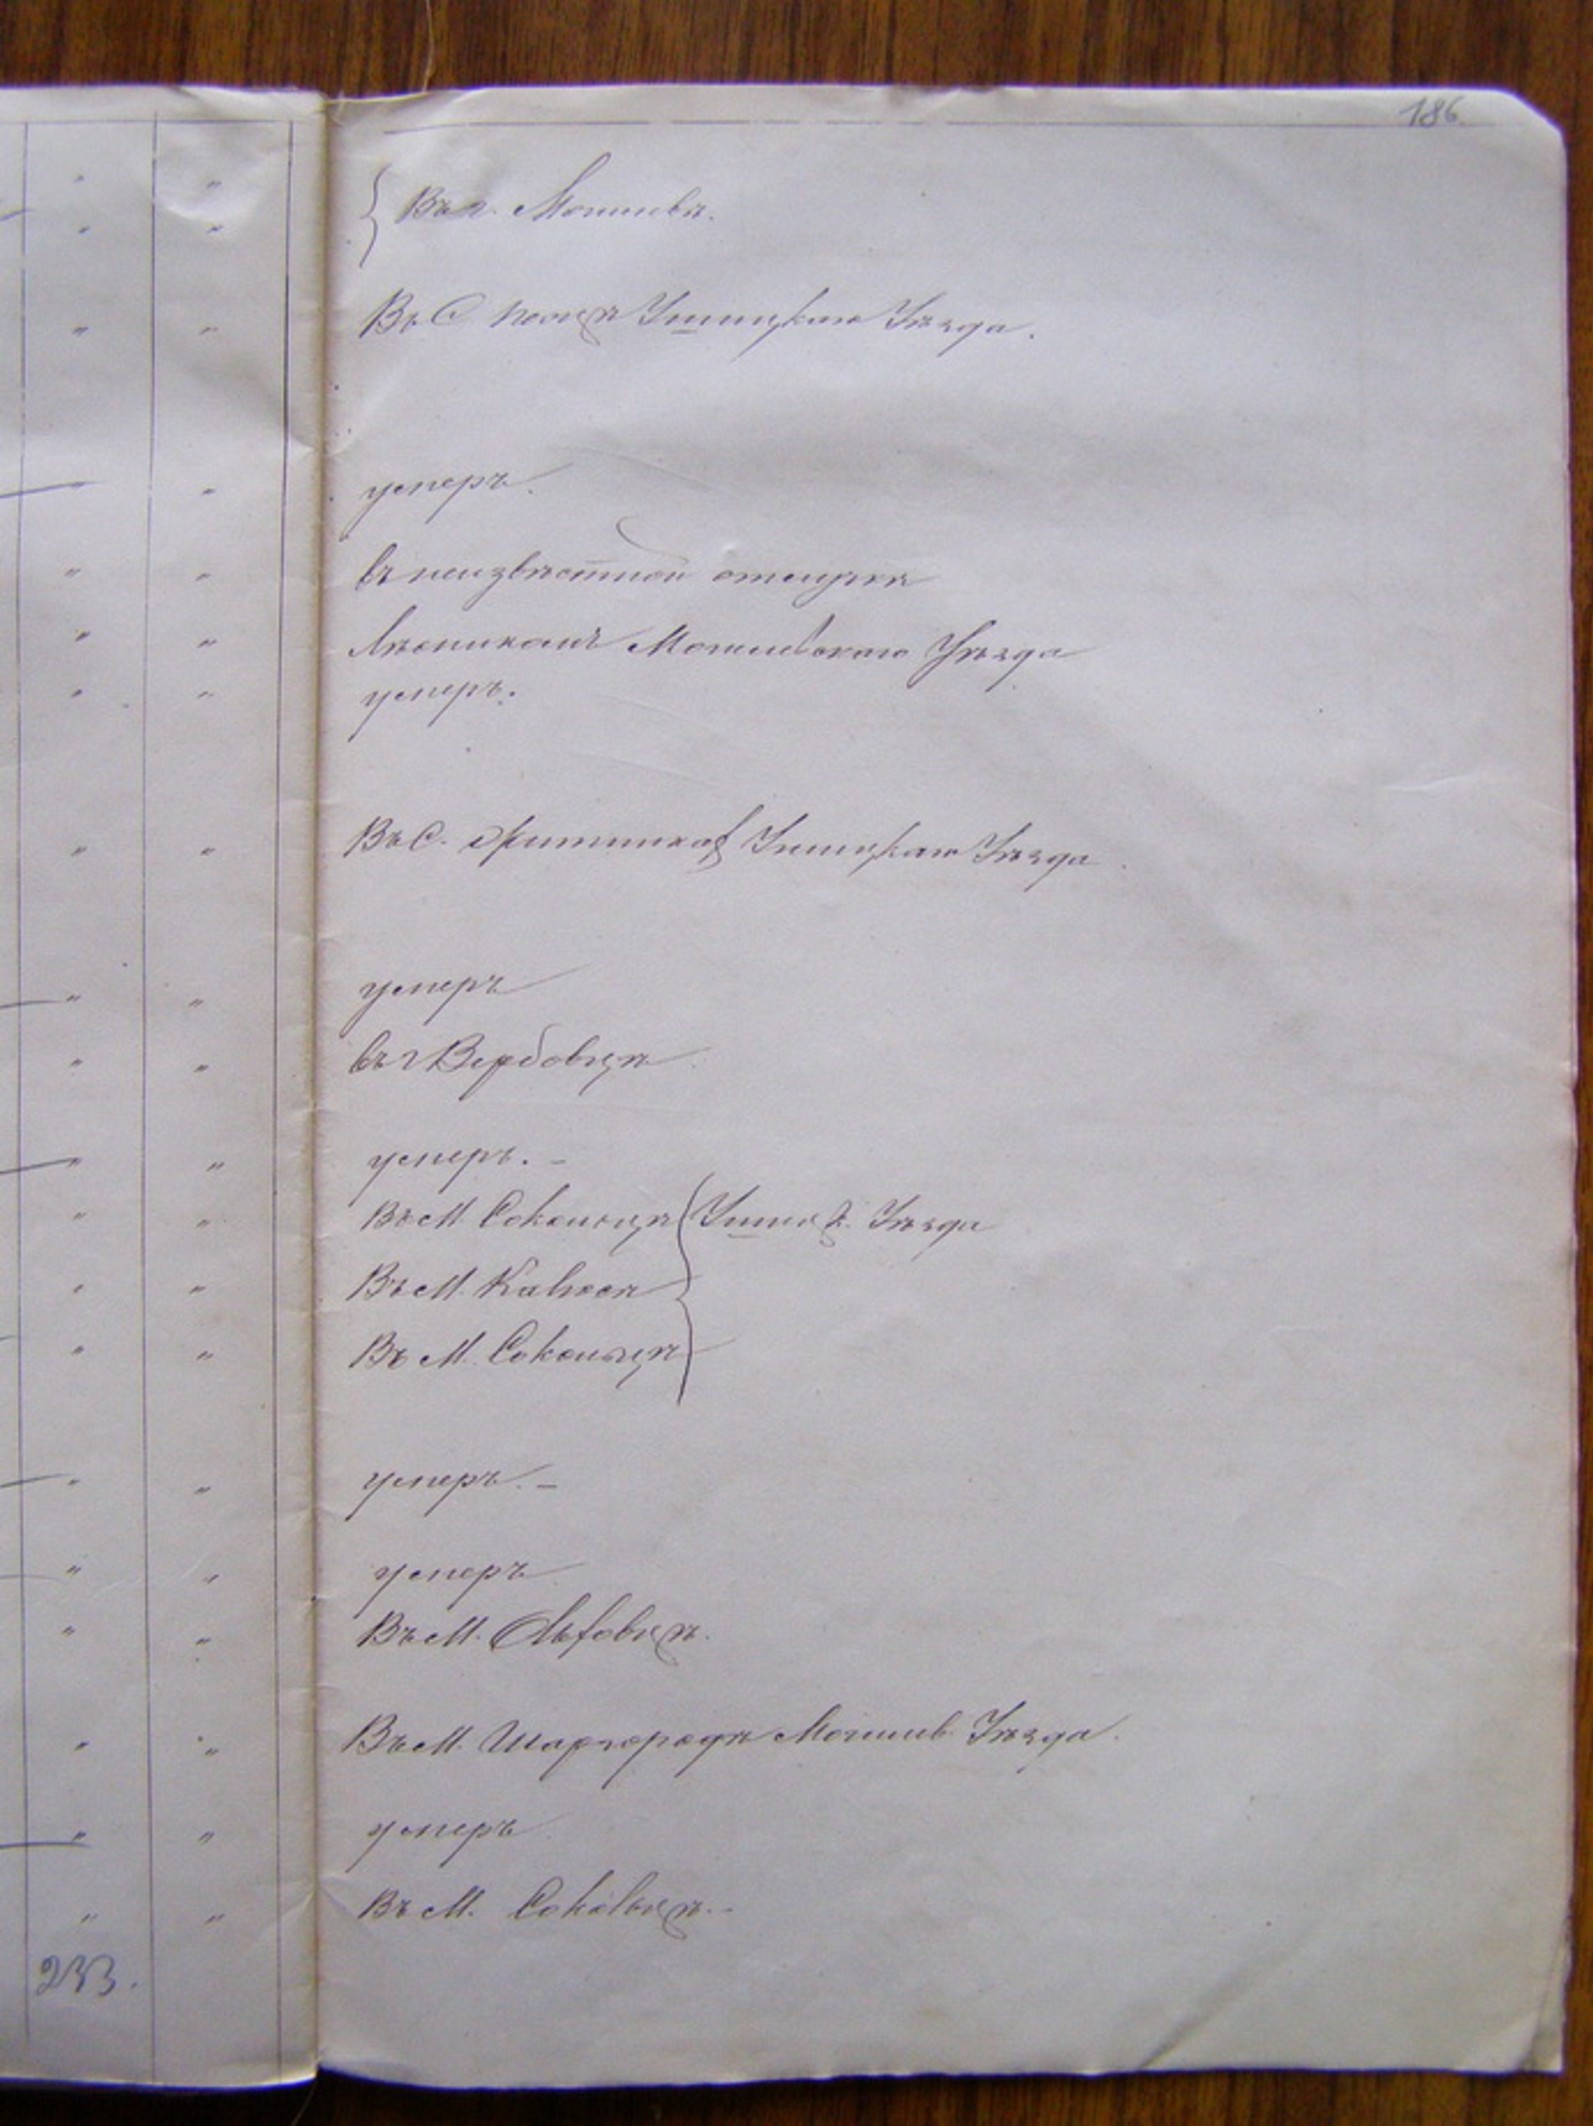 186
Въ г. Могилевѣ.
Въ С. Ушицкаго Уѣзда.
умеръ.
въ неизвѣстной отлучкѣ
Могилевскаго Уѣзда
умеръ.
Въ С. Ушицкаго Уѣзда
умеръ
въ г Вербовцѣ
умеръ. –
Въ М. Сокольцѣ Ушицк. Уѣзда
Въ М. Калюсѣ
Въ М. Сокольцѣ
умеръ. –
умеръ
Въ М. Ольховцѣ.
Въ М. Шаргородѣ Могилев. Уѣзда.
умеръ
Въ М. Сокольцѣ. –
233.